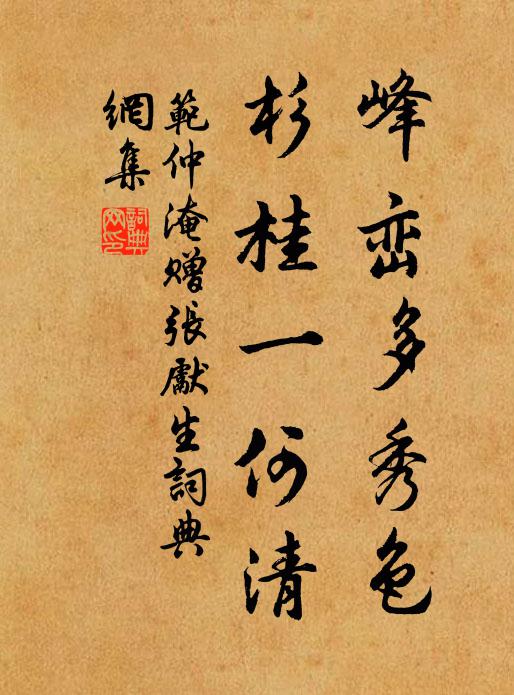 峰峦多秀色
杉桂一何清
範仲淹赠張獻生詞典
網集
詞典网印